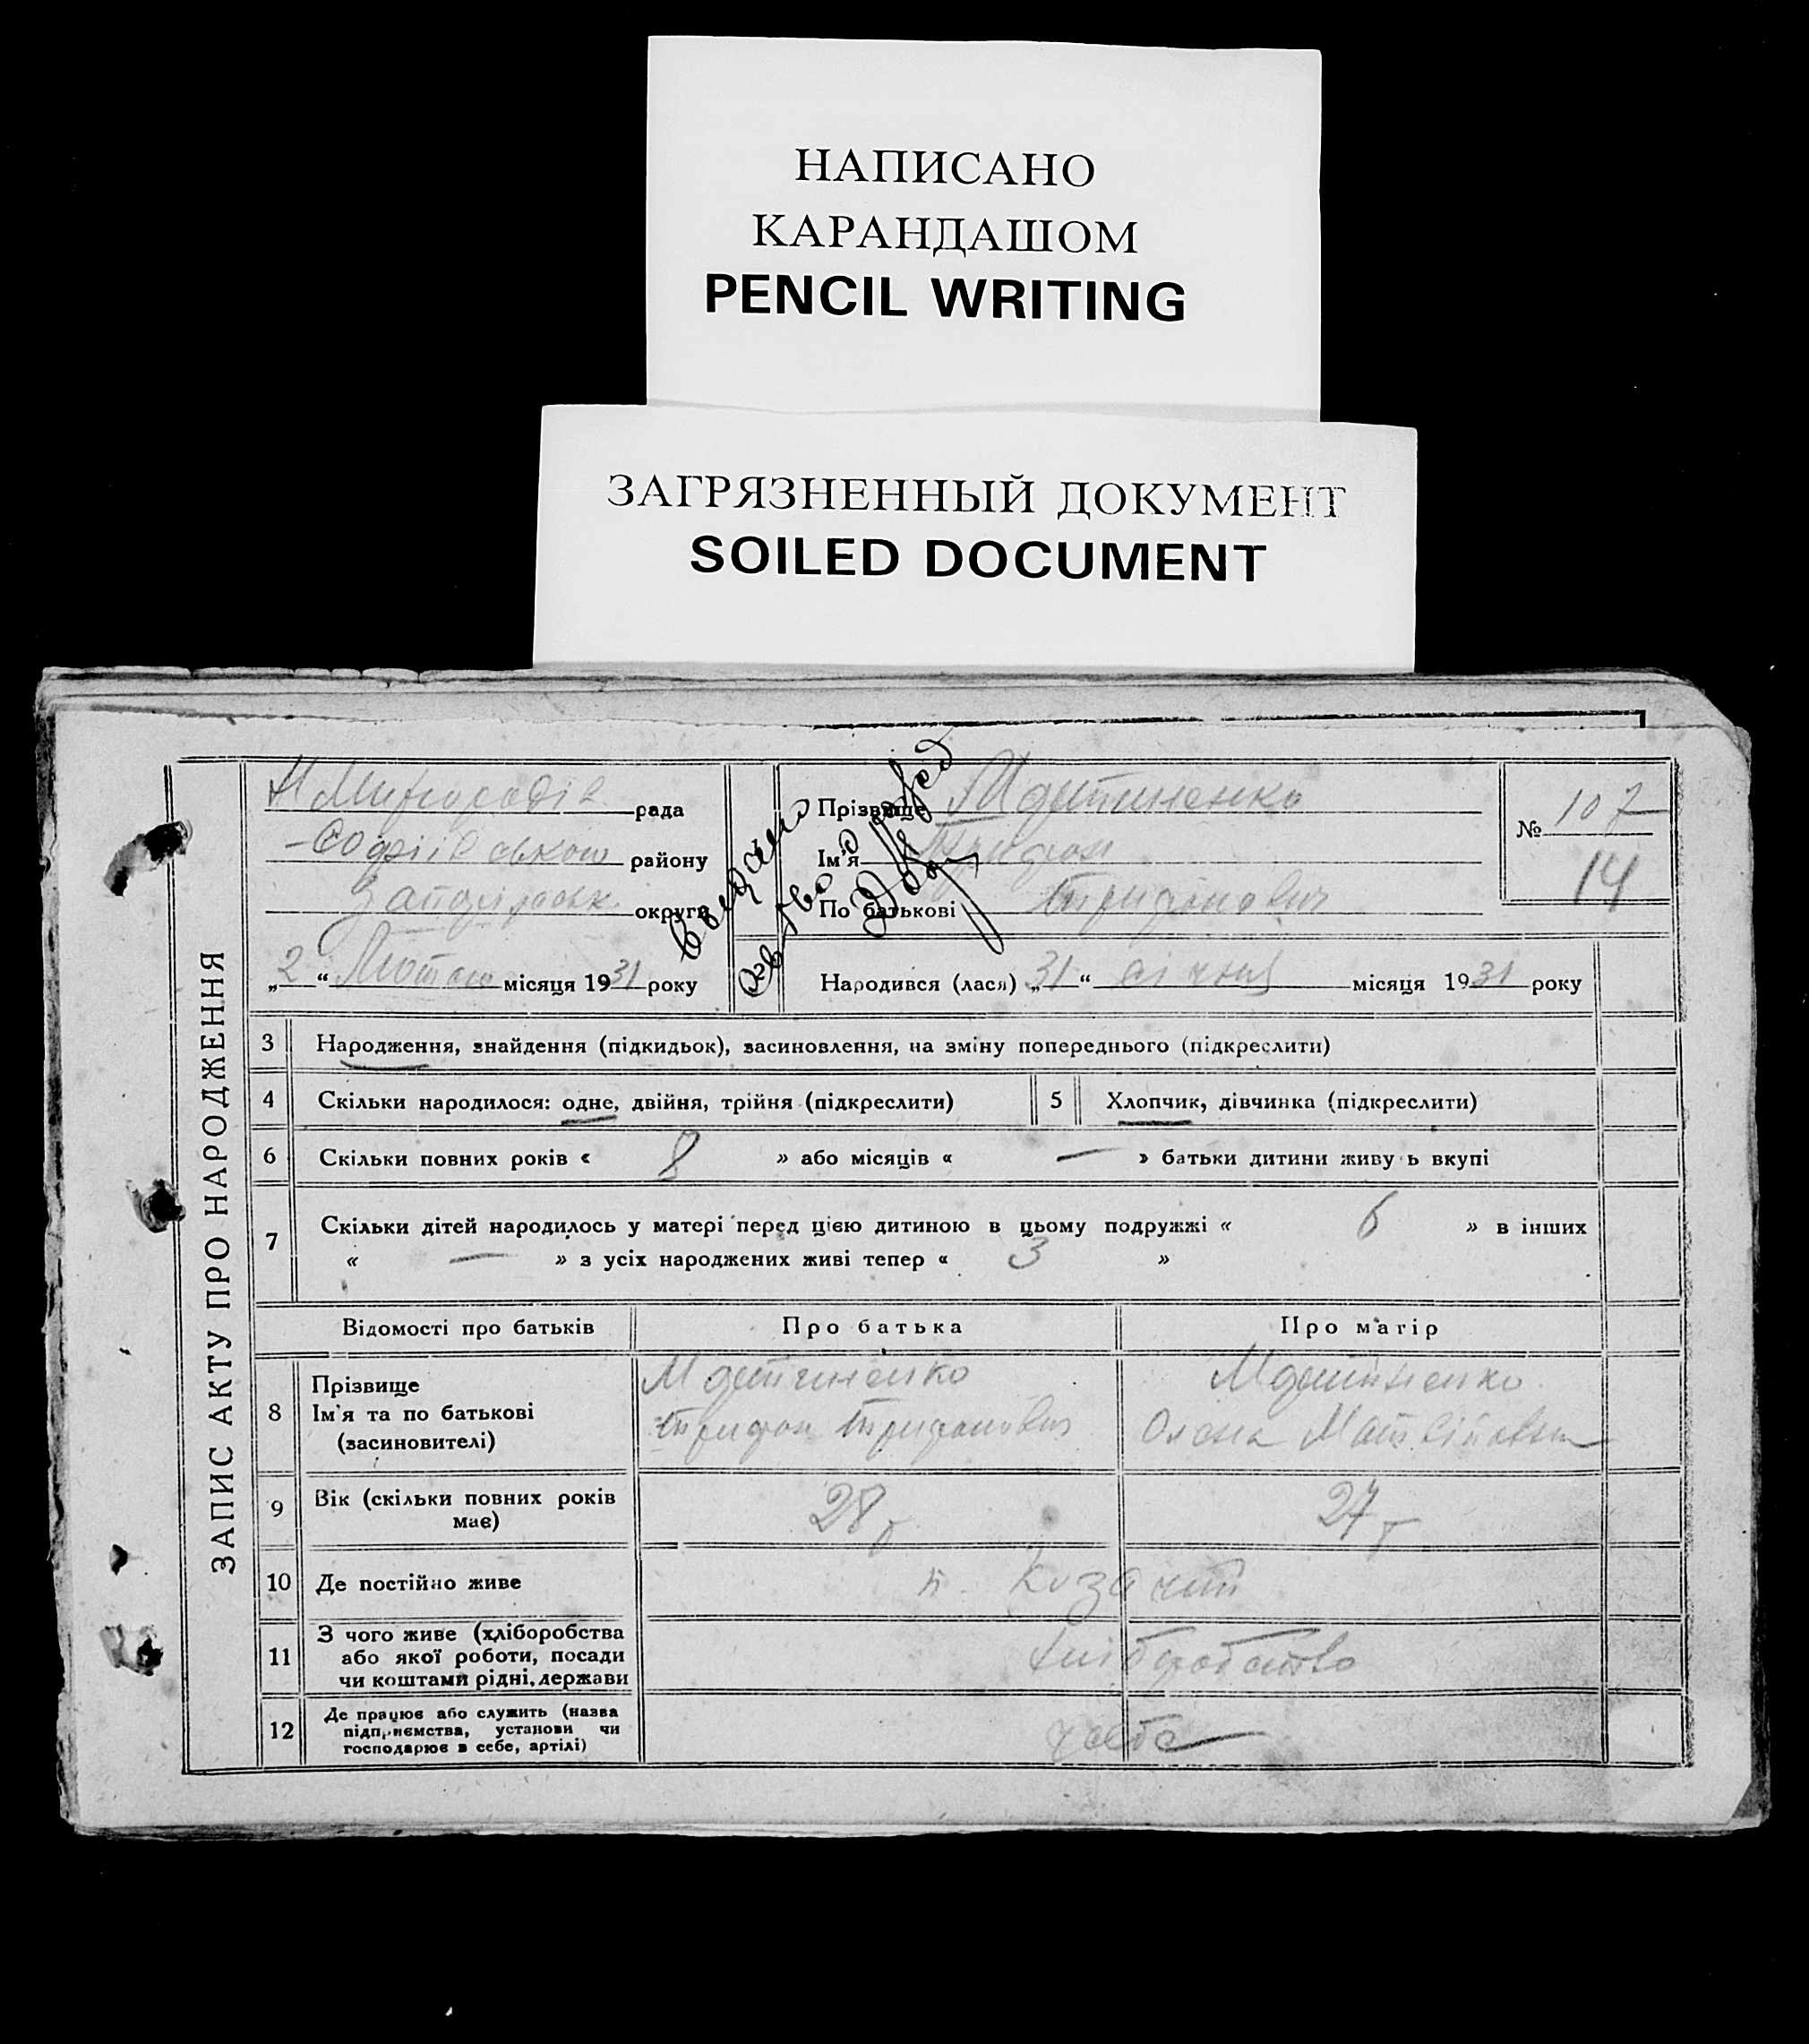 НАПИСАНО
КАРАНДАШОМ
PENCIL WRITING
ЗАГРЯЗНЕННЫЙ ДОКУМЕНТ
SOILED DOCUMENT
ЗАПИС АКТУ ПРО НАРОДЖЕННЯ
рада
району
округи
„2“ Лютого місяця 1931 року
Видано
Прізвище
Ім'я Трифон
По батькові Трифонович
№ 107
14
Народився (лася) „31“ січня місяця 1931 року
3 Народження, знайдення (підкидьок), засиновлення, на зміну попереднього (підкреслити)
4 Скільки народилося: одне, двійня, трійня (підкреслити) 5 Хлопчик, дівчинка (підкреслити)
6 Скільки повних років « 8 » або місяців « — » батьки дитини живу ь вкупі
7 Скільки дітей народилось у матері перед цією дитиною в цьому подружжі « 6 » в інших
« — » з усіх народжених живі тепер « 3 »
Відомості про батьків Про батька Про матір
8 Прізвище
Ім'я та по батькові Трифон Трифонович Олена Матвіївна
(засиновителі)
9 Вік (скільки повних років має) 28 г 27 г
10 Де постійно живе
11 З чого живе (хліборобства
або якої роботи, посади
чи коштами рідні, держави хліборобство
12 Де працює або служить (назва
підприємства, установи чи
господарює в себе, артілі) у себе